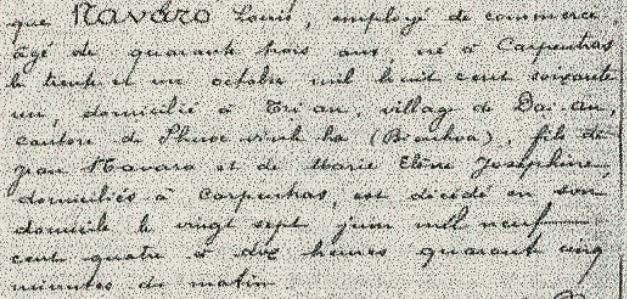 que Navaro Louis, employé de commerce
âgé de quarante trois ans, né à Carpentras
le trente et un octobre mil huit cent soixante
un, domicilié à Tri an, village de Dai-An,
canton de Phuoc vinh ha (Bienhoa), fils de
Jean Navaro et de Marie Elène Joséphine
domiciliés à Carpentras, est décédé en son
domicile le vingt sept juin mil neuf
cent quatre à dix heures quarant cinq
minutes du matin.